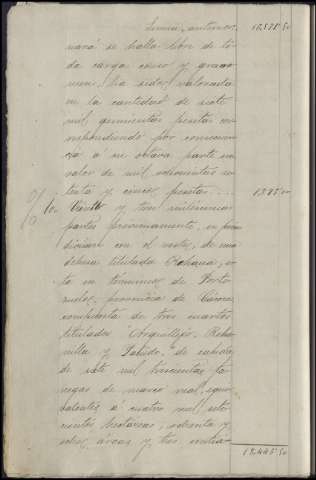 Suma anterior 16,571"50
nará se halla libre de to-
da carga censo y grava-
men. Ha sido valorada
en la cantidad de siete
mil quinientas pesetas co-
rrespondiendo por consecuen-
cia á su octava parte un
valor de mil ochocientas se-
tenta y cinco pesetas ... 1,875"
10. Veinte y tres milésimas
partes proximamente, en pro
indiviso con el resto, de una
dehesa titulada Rehana, si-
ta en término de Porte-
zuelo, provincia de Cáceres
compuesta de tres cuartos
titulados "Arquillejo, Reha-
nilla y Pardo" de cabida
de siete mil trescientas fa-
negas de marco real, equi-
valentes á cuatro mil sete-
cientas hectáreas, ochenta y
ocho áreas y tres centiá-
18,446"50